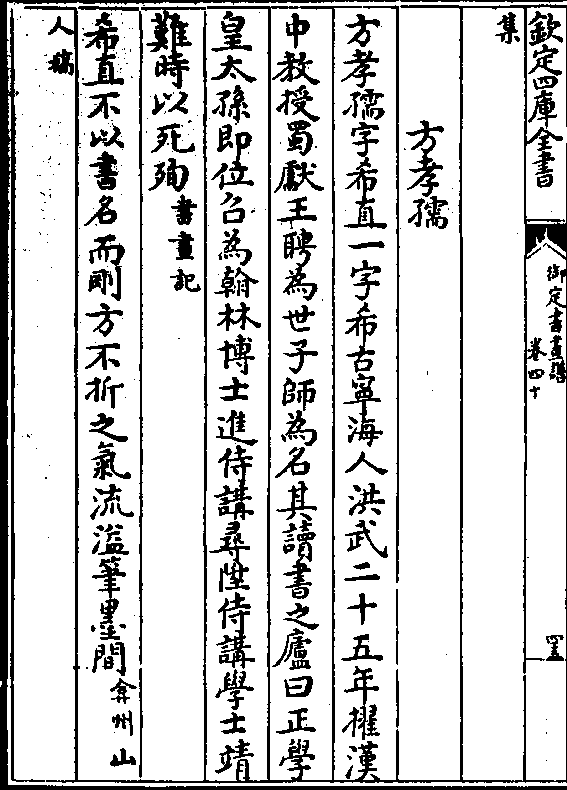 欽定四庫全書
御定書畫譜
卷四十
集
方孝孺
方孝孺字希直一字希古寧海人洪武二十五年擢漢
中教授蜀獻王聘為世子師為名其讀書之廬曰正學
皇太孫即位召為翰林博士進侍講尋陞侍講學士靖
難時以死殉書畫記
希直不以書名而剛方不折之氣流溢筆墨間弇州山
人稿